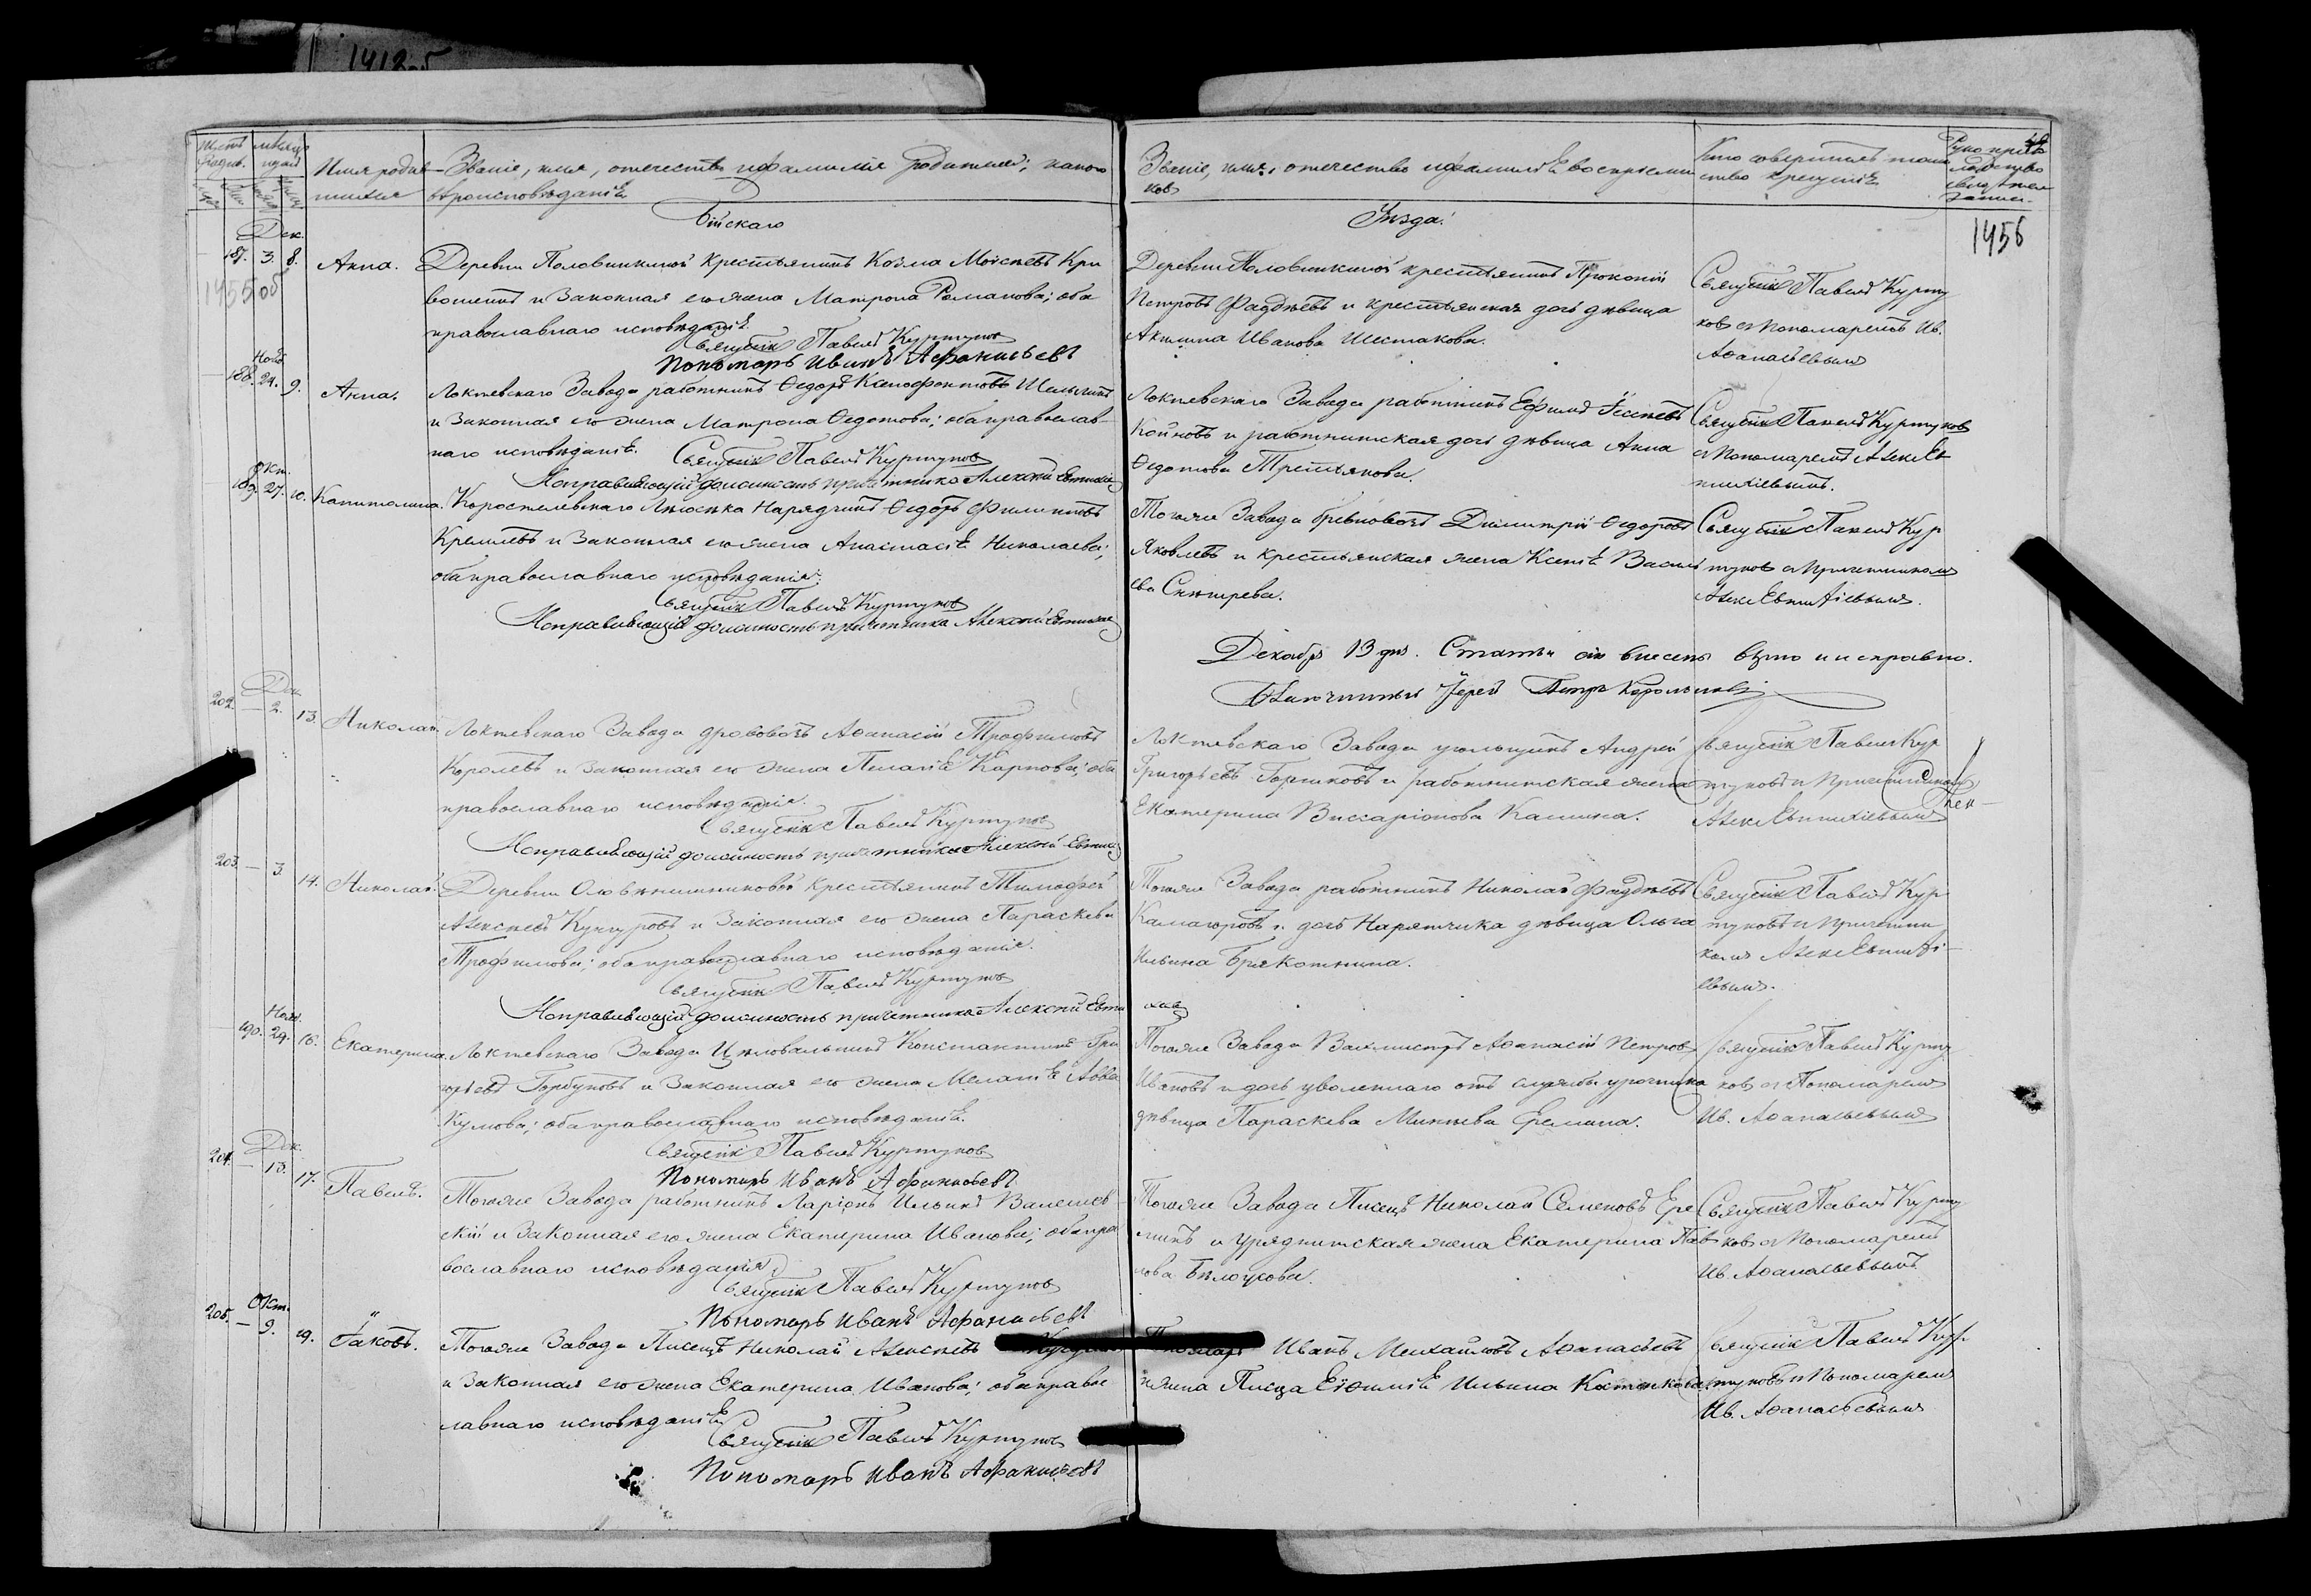 1412об
Имя родив-
шихся
Званіе, имя, отечество и фамилія родителей; какого
вѣроисповѣданія
Званіе, имя, отечество и фамилія воспріемни
ковъ
Кто совершилъ таин
ство крещенія
Бійскаго
Уѣзда:
1456
1455об
Дек.
187. 3. 8. Анна.
Деревни Половинкиной крестьянинъ Козма Моисеевъ Кри
вошеинъ и законная его жена Матрона Романова; оба
православнаго исповѣданія.
Священникъ Павелъ Куртуковъ
Пономарь Иванъ Афанасьевъ
Деревни Половинкиной крестьянинъ Прокопій
Петровъ Фаддѣевъ и крестьянская дочь дѣвица
Акилина Иванова Шестакова.
Священникъ Павелъ Курту
ковъ съ Пономаремъ Ив.
Аѳанасьевымъ
Нояб.
188. 24. 9. Анна.
Локтевскаго Завода работникъ Ѳедоръ Ксенофонтовъ
и законная его жена Матрона Ѳедотова; оба православ-
наго исповѣданія. Священникъ Павелъ Куртуковъ
Исправляющій должность причетника Алексій
Локтевскаго Завода работникъ Ефимъ
и работничская дочь дѣвица Анна
Ѳедотова Третьякова.
Священникъ Павелъ Куртуковъ
съ Пономаремъ Алек. Ев
тихіевымъ.
Окт.
189. 27. 10. Капитолина.
Коростелевскаго Нарядчикъ Ѳедоръ Филиповъ
Кремлевъ и законная его жена Анастасія Николаева;
оба православнаго исповѣданія.
Священникъ Павелъ Куртуковъ
Исправляющій должность причетника Алексій
Тогоже Завода бревновозъ Димитрій Ѳедоровъ
Яковлевъ и крестьянская жена Ксенія Василь
ева Снигирева.
Священникъ Павелъ Кур
туковъ съ причетникомъ
Алек. Евтихіевымъ.
Декабря 13 дня. Статьи сіи внесены вѣрно и исправно.
Благочинный Іерей Петръ
Дек.
202. — 2. 13. Николай.
Локтевскаго Завода дрововозъ Аѳанасій Трофимовъ
Королевъ и законная его жена Пелагія Карпова; оба
православнаго исповѣданія.
Священникъ Павелъ Куртуковъ
Исправляющій должность причетника Алексій
Локтевскаго Завода угольщикъ Андрей
Григорьевъ и работничская жена
Екатерина Виссаріонова Кашина.
Священникъ Павелъ Кур
туковъ и причетникомъ
Алек. Евтихіевымъ
203. — 3. 14. Николай.
Деревни крестьянинъ Тимофей
Алексѣевъ Кунгуровъ и законная его жена Параскева
Трофимова; оба православнаго исповѣданія.
Священникъ Павелъ Куртуковъ
Исправляющій должность причетника Алексій Евти
хіевъ
Тогоже Завода работникъ Николай Фаддѣевъ
и дочь Нарятчика дѣвица Ольга
Ильина Брякотнина.
Священникъ Павелъ Кур
туковъ и причетни
комъ Алек. Евтихі-
евымъ.
Нояб.
190. 29. 16. Екатерина.
Локтевскаго Завода Цѣловальникъ Константинъ Гри
горьевъ Горбуновъ и законная его жена Меланія Авва
кумова; оба православнаго исповѣданія.
Священникъ Павелъ Куртуковъ
Пономарь Иванъ Афанасьевъ
Тогоже Завода Вахмистръ Аѳанасій Петровъ
Ивановъ и дочь уволеннаго отъ службы урочника
дѣвица Параскева Минѣева Еремина.
Священникъ Павелъ Курту
ковъ съ Пономаремъ
Ив. Аѳанасьевымъ
Дек.
204. — 13. 17. Павелъ.
Тогоже Завода работникъ Ларіонъ Ильинъ Валешев-
скій и законная его жена Екатерина Иванова; оба пра
вославнаго исповѣданія.
Священникъ Павелъ Куртуковъ
Пономарь Иванъ Афанасьевъ
Тогоже Завода Писецъ Николай Семеновъ Ере
минъ и урядничская жена Екатерина Пав
лова Бѣлоусова.
Священникъ Павелъ Курту
ковъ съ Пономаремъ
Ив. Аѳанасьевымъ
Окт.
205. — 9. 19. Іаковъ.
Тогоже Завода Писецъ Николай Алексѣевъ
и законная его жена Екатерина Иванова; оба правос
лавнаго исповѣданія
Священникъ Павелъ Куртуковъ
Пономарь Иванъ Афанасьевъ
Иванъ Михайловъ Аѳанасьевъ
и жена Писца Евфимія Ильина
Священникъ Павелъ Кур
туковъ и Пономаремъ
Ив. Аѳанасьевымъ